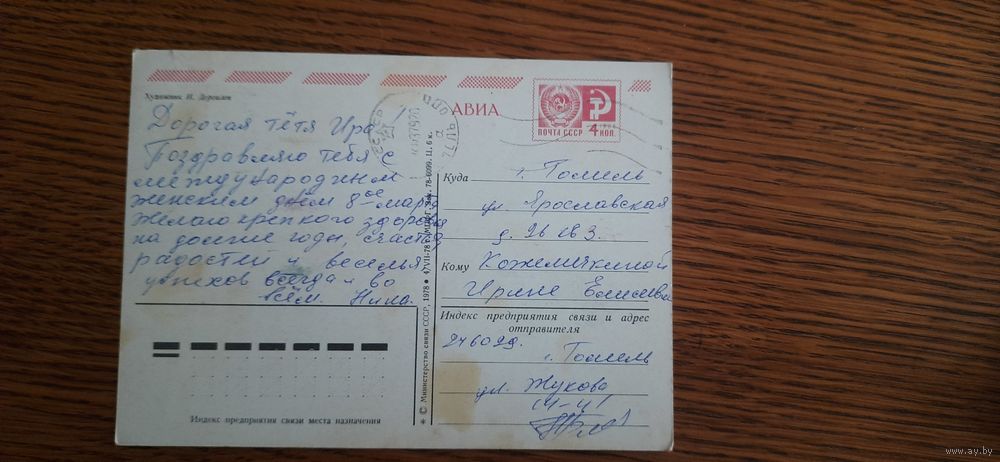 Художник И. Дергилев
Дорогая тётя Ира!
Поздравляю тебя с
международным
женским днём 8ое марта
желаю крепкого здоровья
на долгие годы, счастья
радости и веселья
успехов всегда и во
всём. Нила.
Индекс предприятия связи места назначения
© Министерство связи СССР, 1978 ● 4/VII-78 г. МПФГ. Зак. 78-6099. Ц. 6 к.
АВИА
ПОЧТА СССР
4 КОП.
Куда
г. Гомель
ул. Ярославская
д. 26 кв 3.
Кому
Кожемякиной
Ирине
Индекс предприятия связи и адрес
отправителя
246029.
г. Гомель
ул. Жукова
14-41
www.ay.by